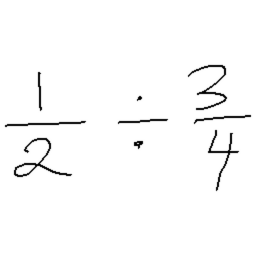 1/2 ÷ 3/4